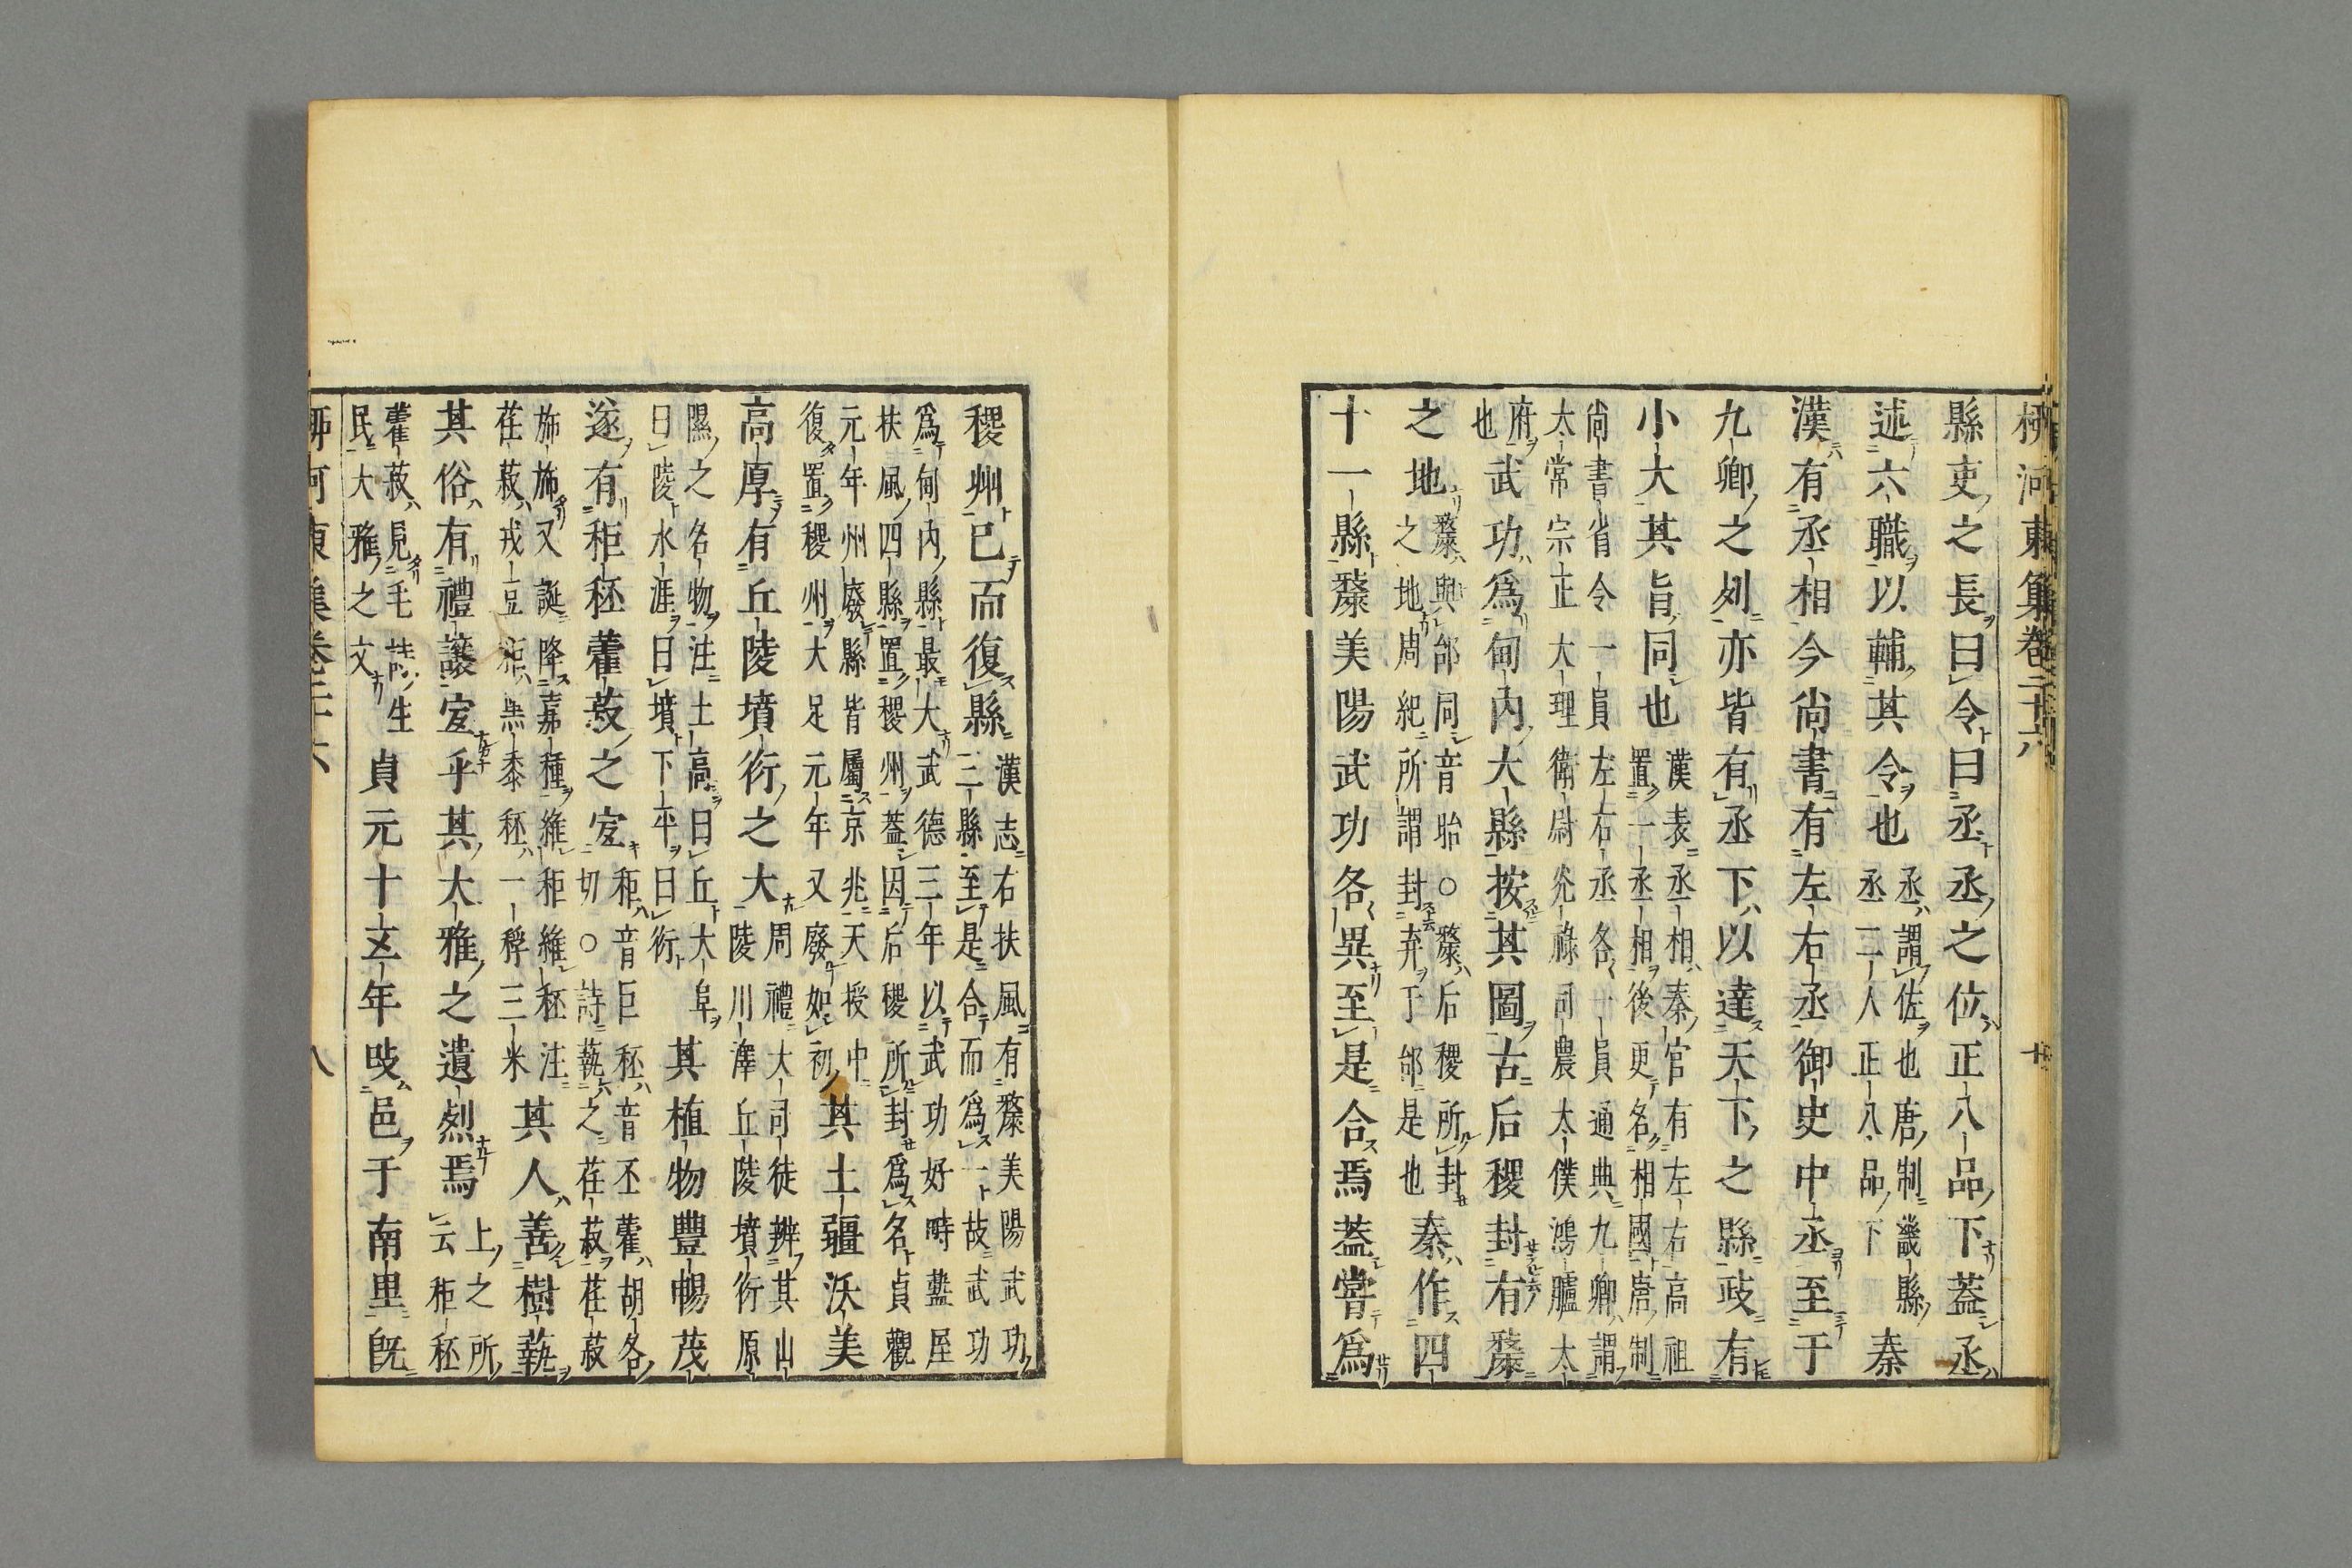 柳河東集卷二十六
縣吏之長曰令曰丞丞之位正八品下蓋丞
述六職以輔其令也丞謂佐也唐制畿縣丞二人正八品下秦
漢有丞相今尚書有左右丞御史中丞至于
九卿之列亦皆有丞下以達天下之縣政有
小大其旨同也漢表丞相秦官有左右高祖置一丞相後更名相國唐制
尚書省令一員左右丞各一員通典九卿謂太常宗正大理衛尉光祿司農太僕鴻臚太
府也武功爲甸內大縣按其圖古后稷封有斄
之地斄與邰同音胎○斄后稷所封之地周紀所謂封弃于邰是也秦作四
十一縣斄美陽武功各異至是合焉蓋嘗爲
稷州已而復縣漢志右扶風有斄美陽武功三縣至是合而爲一故武功
爲甸內縣最大武德三年以武功好畤盩厔扶風四縣置稷州蓋因后稷所封爲名貞觀
元年州廢縣皆屬京兆天授中復置稷州大足元年又廢如初其土疆沃美
高厚有丘陵墳衍之大周禮大司徒辨其山陵川澤丘陵墳衍原
隰之名物注土高曰丘大阜曰陵水涯曰墳下平曰衍其植物豐暢茂
遂有秬秠藿菽之宜秬音巨秠音丕藿胡各切○詩蓺之荏菽荏菽
施施又誕降嘉種維秬維秠注荏菽戎豆秬黑黍秠一稃三米其人善樹蓺
其俗有禮讓宜乎其大雅之遺烈焉上之所云秬秠
藿菽見毛詩生民大雅之文貞元十五年吱邑于南里旣
柳河東集卷二十六 八